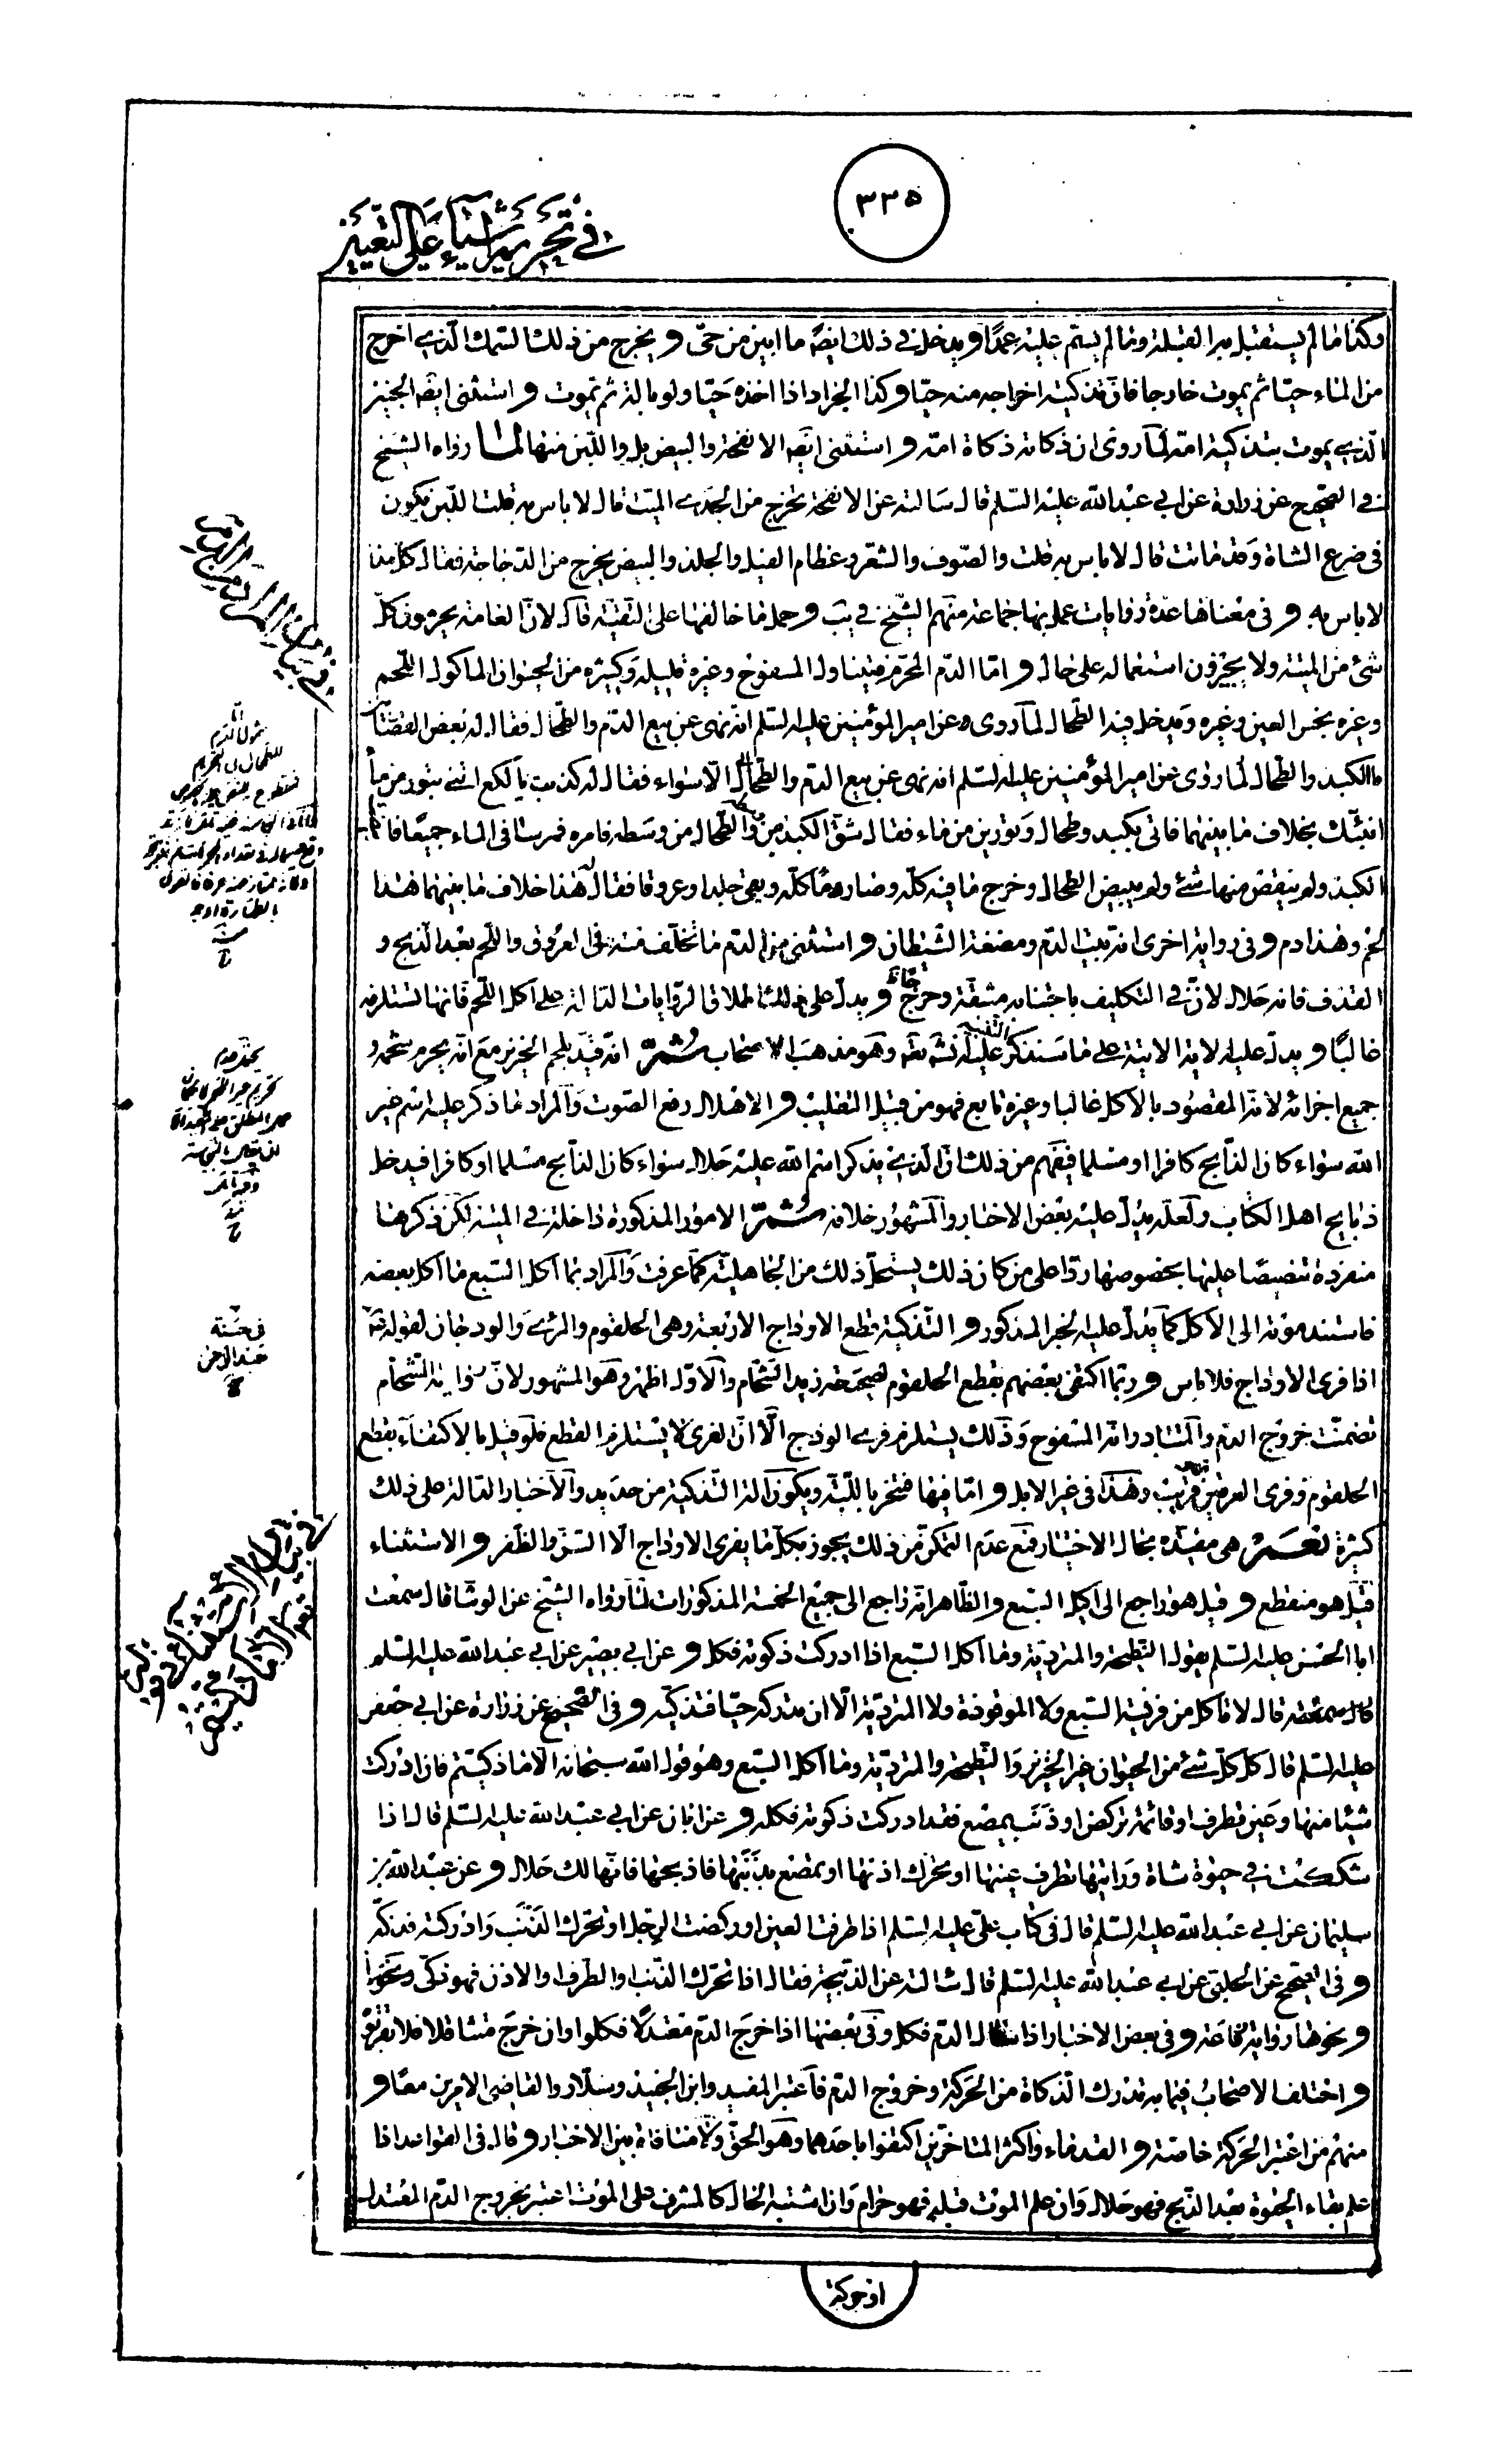 ٣٣٥
في تحريم اشياء على التعيين
وكذا ما لم يستقبل به القبلة وما لم يسم عليه عمدًا و يدخل في ذلك ايضًا ما ابين من حي و يخرج من ذلك السمك الذي اخرج
من الماء حيا ثم يموت خارجا فان تذكيته اخراجه منه حيا و كذا الجراد اذا اخذه حيا ولو بالة ثم تموت و استثنى ايضا الجنين
الذي يموت بتذكية امه لما روى ان ذكاته ذكاة امه و استثنى ايضا الانفحة والبيض بل واللبن منها لما رواه الشيخ
في الصحيح عن زرارة عن ابي عبد الله عليه السلم قال سالته عن الانفحة تخرج من الجدي الميت قال لا باس به قلت اللبن يكون
في ضرع الشاة وقد ماتت قال لا باس به قلت والصوف والشعر وعظام الفيل والجلد والبيض يخرج من الدجاجة فقال كل هذا
لا باس به و في معناها عدة روايات عمل بها جماعة منهم الشيخ في يب و حمل ما خالفها على التقية قال لان العامة يحرمون كل
شئ من الميتة ولا يجيزون استعماله على حال و اما الدم المحرم فيتناول المسفوح وغيره قليله وكثيره من الحيوان الماكول اللحم
وغيره نجس العين وغيره ويدخل فيه الطحال لما روى عن امير المؤمنين عليه السلم انه نهى عن بيع الدم والطحال فقال له بعض القصابين
ما الكبد والطحال الا سواء فقال له كذبت يا لكع ائتني بتور من ماء
انبئك بخلاف ما بينهما فاتي بكبد وطحال وتورين من ماء فقال شق الكبد من وسطه والطحال من وسطه فامر فمرسا في الماء جميعًا فابيضت
الكبد ولم ينقص منها شئ ولم يبيض الطحال وخرج ما فيه كله وصار دمًا كله وبقى جلدا وعروقا فقال له هذا خلاف ما بينهما هذا
لحم وهذا دم و في رواية اخرى انه بيت الدم ومضغة الشيطان و استثنى من الدم ما تخلف منه في العروق واللحم بعد الذبح و
القذف فانه حلال لان في التكليف باجتنابه مشقة وحرج و يدل على ذلك اطلاق الروايات الدالة على اكل اللحم فانها تستلزمه
غالبًا و يدل عليه الاية الاتية على ما سنذكر وهو مذهب الاصحاب ثم انه قيد بلحم الخنزير مع انه يحرم شحمه و
جميع اجزائه لانه المقصود بالاكل غالبا وغيره تابع فهو من قبيل التغليب و الاهلال رفع الصوت والمراد ما ذكر عليه اسم غير
الله سواء كان الذابح كافرا او مسلما فيفهم من ذلك ان الذي يذكر اسم الله عليه حلال سواء كان الذابح مسلما او كافرا فيدخل
ذبايح اهل الكتاب ولعله يدل عليه بعض الاخبار والمشهور خلافه ثم الامور المذكورة داخلة في الميتة لكن ذكرها
منفردة تنصيصًا عليها بخصوصها ردا على من كان ذلك يستحل ذلك من الجاهلية كما عرفت والمراد بما اكل السبع ما اكل بعضه
فاستند موته الى الاكل كما يدل عليه الخبر المذكور و التذكية قطع الاوداج الاربعة وهي الحلقوم والمرئ والودجان لقوله
اذا فرى الاوداج فلا باس و ربما اكتفى بعضهم بقطع الحلقوم لصحيحة زيد الشحام والاول اظهر وهو المشهور لان رواية الشحام
تضمنت خروج الدم والمتبادر انه المسفوح وذلك يستلزم فري الودج الا ان الفرى لا يستلزم القطع فلو قيل بالاكتفاء بقطع
الحلقوم وفرى العرقين قريب وهذا في غير الابل و اما فيها فنحر باللبة ويكون الة التذكية من حديد والاخبار الدالة على ذلك
كثيرة نعم هي مقيدة بحال الاختيار فمع عدم التمكن من ذلك يجوز بكل ما يفرى الاوداج الا السن والظفر و الاستثناء
قيل هو منقطع و قيل هو راجع الى اكيل السبع والظاهر انه راجع الى جميع الخمسة المذكورات لما رواه الشيخ عن الوشا قال سمعت
ابا الحسن عليه السلم يقول النطيحة والمتردية وما اكل السبع اذا ادركت ذكوته فكل و عن ابي بصير عن ابي عبد الله عليه السلم
قال سمعته قال لا تاكل من فريسة السبع ولا الموقوذة ولا المتردية الا ان تدركه حيًا فتذكيه و في الصحيح عن زرارة عن ابي جعفر
عليه السلم قال كل كل شئ من الحيوان غير الخنزير والنطيحة والمتردية وما اكل السبع وهو قول الله سبحانه الا ما ذكيتم فان ادركت
شيئا منها وعين تطرف او قائمة تركض او ذنب يمصع فقد ادركت ذكوته فكله و عن ابان عن ابي عبد الله عليه السلم قال اذا
شككت في حيوة شاة ورايتها تطرف عينها او تحرك اذنها او تمصع بذنبها فاذبحها فانها لك حلال و عن عبد الله بن
سليمان عن ابي عبد الله عليه السلم قال في كتاب علي عليه السلم اذا طرفت العين او ركضت الرجل او تحرك الذنب وادركته فذكه
و في الصحيح عن الحلبي عن ابي عبد الله عليه السلم قال سالته عن الذبيحة فقال اذا تحرك الذنب او الطرف او الاذن فهو ذكي
و نحوها رواية رفاعة و في بعض الاخبار اذا سال الدم فكل وفي بعضها اذا خرج الدم معتدلًا فكلوا وان خرج متثاقلا فلا تقربوه
و اختلف الاصحاب فيما به تدرك الذكاة من الحركة وخروج الدم فاعتبر المفيد وابن الجنيد وسلار والقاضي الامرين معًا و
منهم من اعتبر الحركة خاصة و القدماء واكثر المتاخرين اكتفوا باحدهما وهو الحق ولا منافاة بين الاخبار و قال في القواعد اذا
علم بقاء الحيوة بعد الذبح فهو حلال وان علم الموت قبله فهو حرام وان اشتبه الحال كالمشرف على الموت اعتبر بخروج الدم المعتدل
في حسنة
عبد الرحمن
او حركة